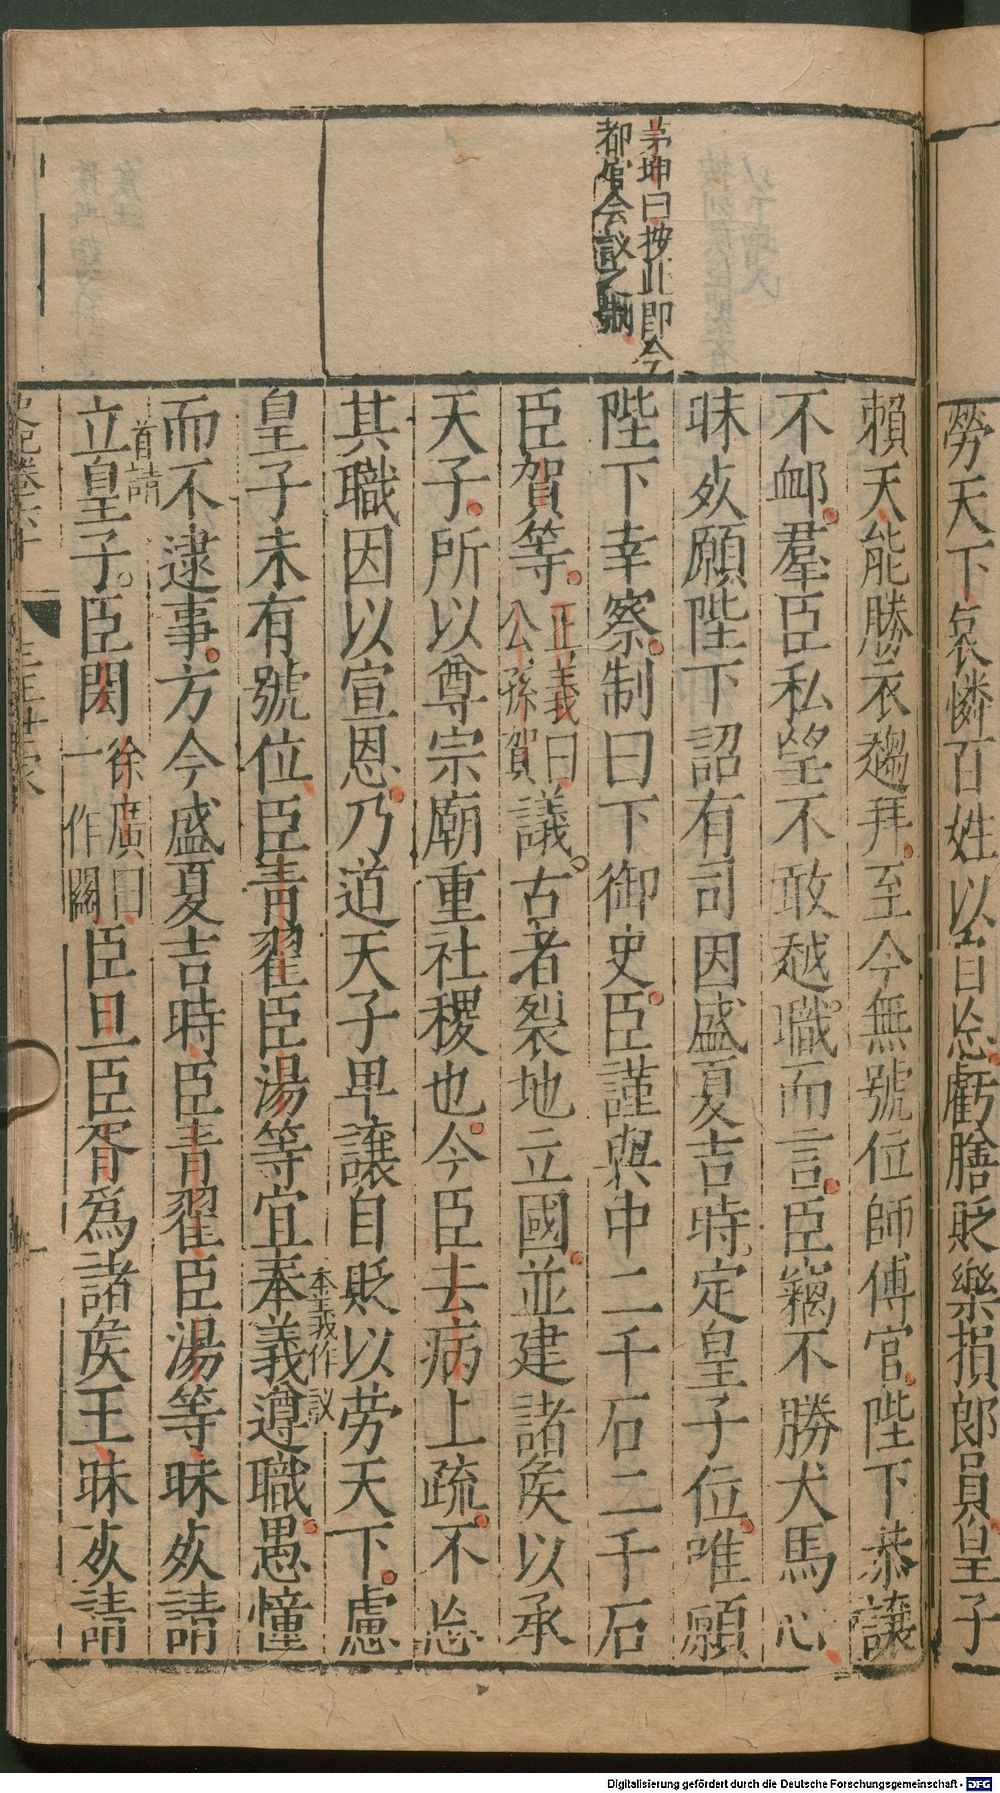 勞天下哀憐百姓以自忘虧膳貶樂損郎員皇子
茅坤曰按此即今
都會議之
賴天能勝衣趨拜至今無號位師傅官陛下恭讓
不卹羣臣私望不敢越職而言臣竊不勝犬馬心
昧死願陛下詔有司因盛夏吉時定皇子位唯願
陛下幸察制曰下御史臣謹與中二千石二千石
臣賀等
正義曰
公孫賀
議古者裂地立國並建諸侯以承
天子所以尊宗廟重社稷也今臣去病上疏不忘
其職因以宣恩乃道天子卑讓自貶以劳天下慮
皇子未有號位臣青翟臣湯等宜奉義遵職愚憧
本義作議
而不逮事方今盛夏吉時臣青翟臣湯等昧死請
首請
立皇子臣閎
徐廣曰
一作闕
臣旦臣胥爲諸侯王昧死請
史記卷六十
三王世家
Digitalisierung gefördert durch die Deutsche Forschungsgemeinschaft - DFG